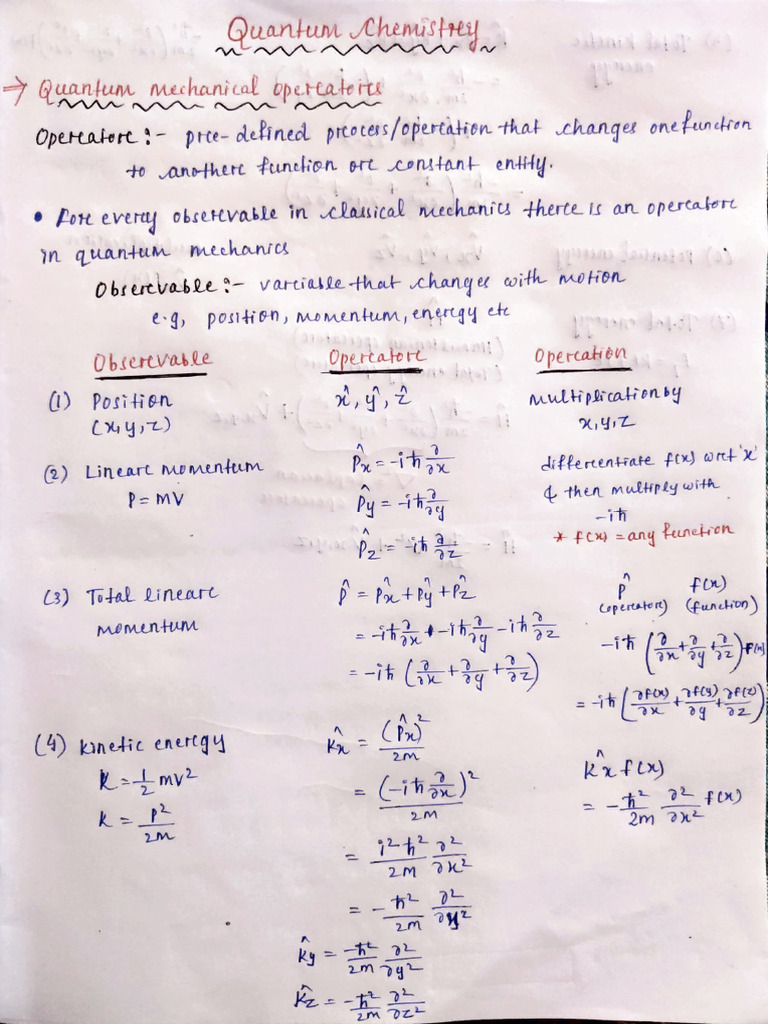 Quantum Chemistry
→ Quantum mechanical operators
Operator :- pre-defined process/operation that changes one function
to another function or constant entity.
• For every observable in classical mechanics there is an operator
in quantum mechanics
Observable :- variable that changes with motion
e.g, position, momentum, energy etc
Observable Operator Operation
(1) Position x̂, ŷ, ẑ Multiplication by
(x,y,z) x,y,z
(2) Linear momentum P̂x = -iħ ∂/∂x differentiate f(x) wrt 'x'
P = mv P̂y = -iħ ∂/∂y & then multiply with
-iħ
P̂z = -iħ ∂/∂z * f(x) = any function
(3) Total linear P̂ = P̂x + P̂y + P̂z P̂ f(x)
momentum (operator) (function)
= -iħ ∂/∂x + -iħ ∂/∂y - iħ ∂/∂z -iħ (∂/∂x + ∂/∂y + ∂/∂z) f(x)
= -iħ (∂/∂x + ∂/∂y + ∂/∂z) = -iħ (∂f(x)/∂x + ∂f(y)/∂y + ∂f(z)/∂z)
(4) kinetic energy K̂x = (P̂x)²/2m
K = 1/2 mv² = (-iħ ∂/∂x)²/2m K̂x f(x)
K = P²/2m = -ħ²/2m ∂²/∂x² f(x)
= i²ħ²/2m ∂²/∂x²
= -ħ²/2m ∂²/∂x²
K̂y = -ħ²/2m ∂²/∂y²
K̂z = -ħ²/2m ∂²/∂z²